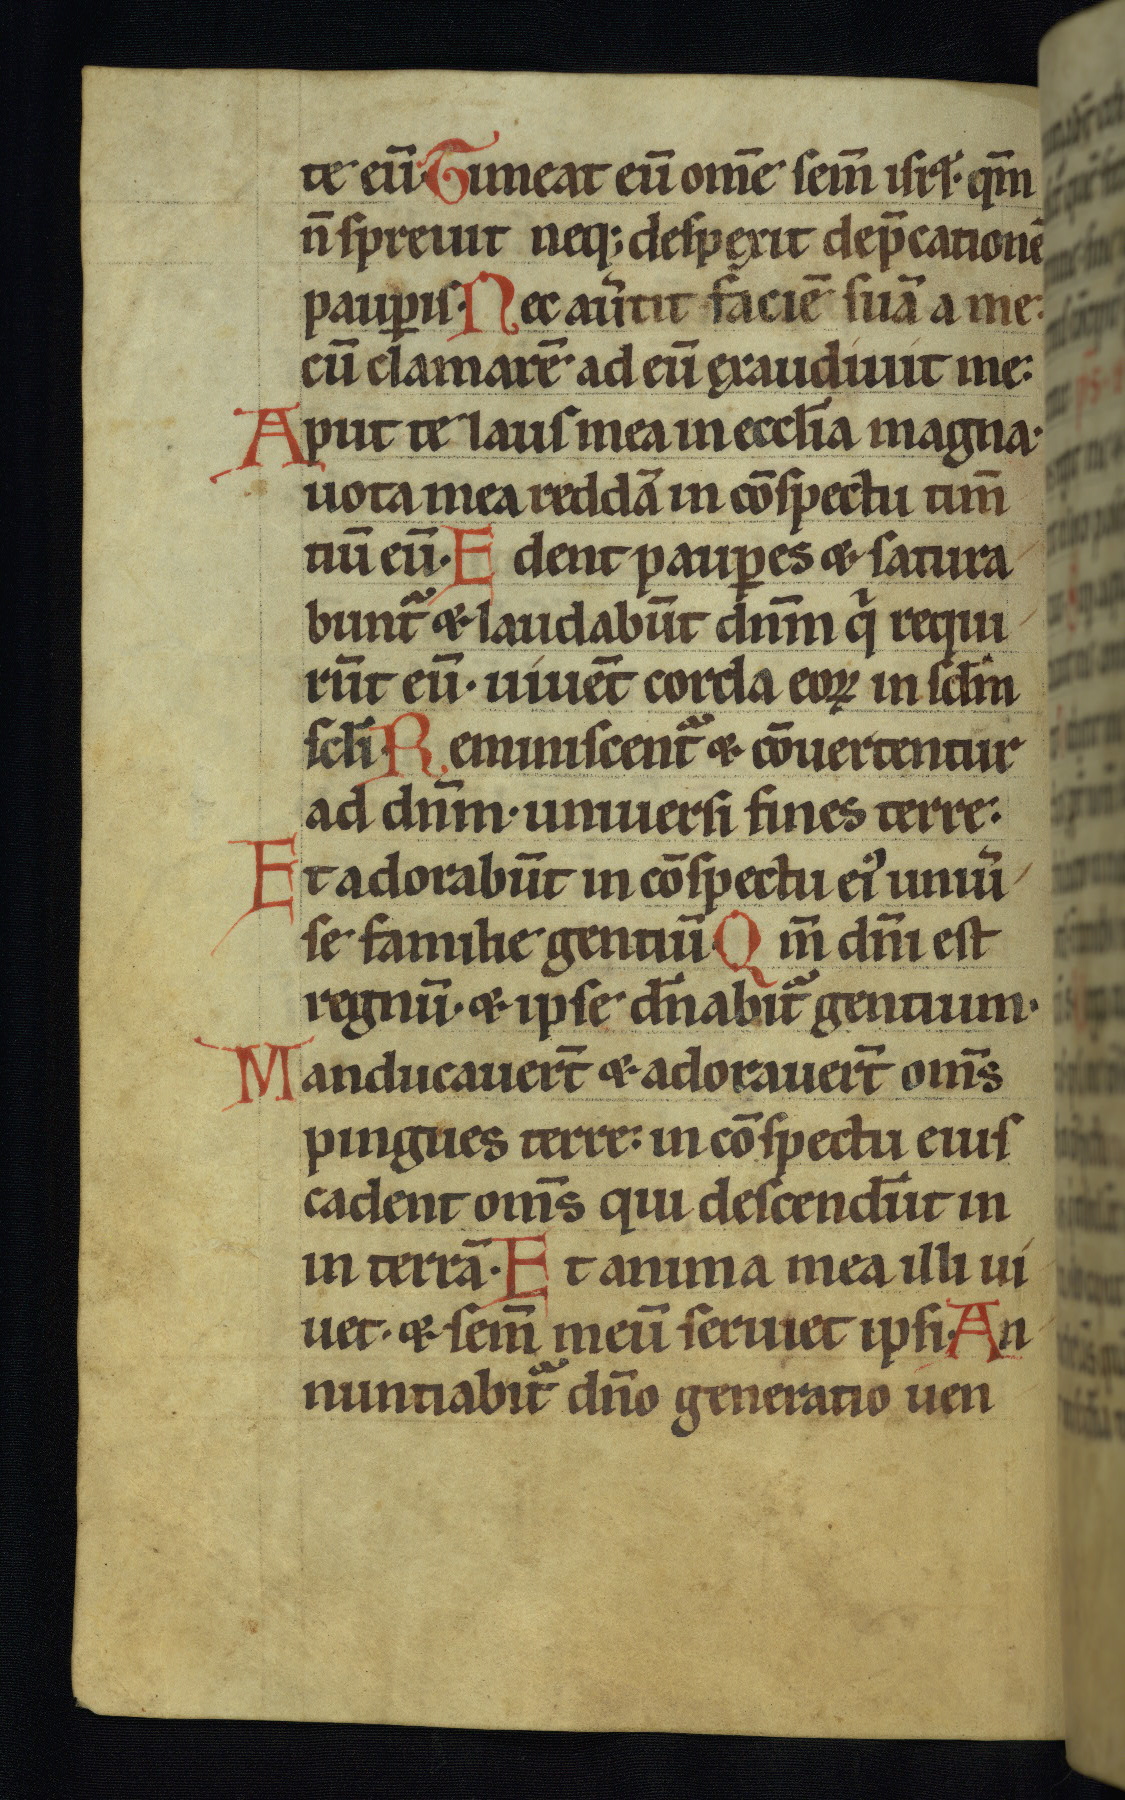 te eū Timeat eū om̄e sem̄ isrł· qm̄
n̄ spreuit neq; despexit dep̄cationē
paup̱is· Nec au̓tit faciē suā a me·
cū clamarē ad eū exaudiuit me:
Aput te laus mea in eccłia magna·
uota mea reddā in cōspectu tim̄
tiū eū· Edent paup̱es & satura
bunt᷑ & laudabūt dn̄m qͥ requi
rūt eū· uiuēt corda eoꝝ in scłm
scłi Reminiscent᷑ & cōuertentur
ad dn̄m· uniuersi fines terre:
Et adorabūt in cōspectu eiꝰ uniu̓
se familie gentiū Qm̄ dn̄i est
regnū· & ipse dn̄abit᷑ gentium·
Manducauer̄t & adorauer̄t om̄s
pingues terre: in cōspectu eius
cadent om̄s qui descendūt in
in terrā· Et anima mea illi ui
uet· & sem̄ meū seruiet ipsi· An
nuntiabit᷑ dn̄o generatio uen